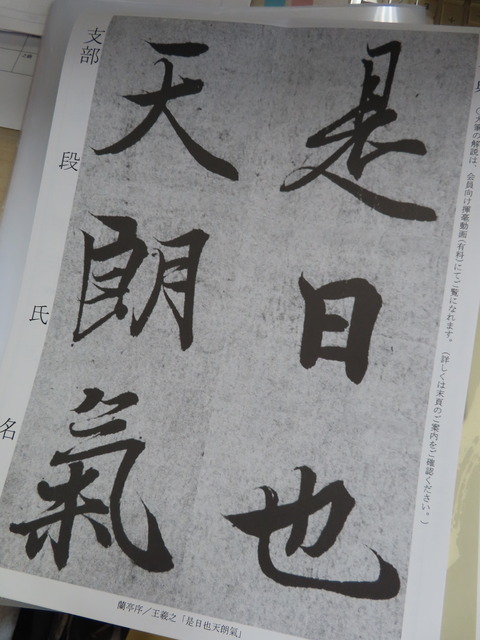 (大筆の解説は、会員向け揮毫動画(有料)にてご覧になれます。(詳しくは末頁のご案内をご確認ください。)
是日也
天朗氣
支部 段 氏 名
蘭亭序/王羲之「是日也天朗氣」